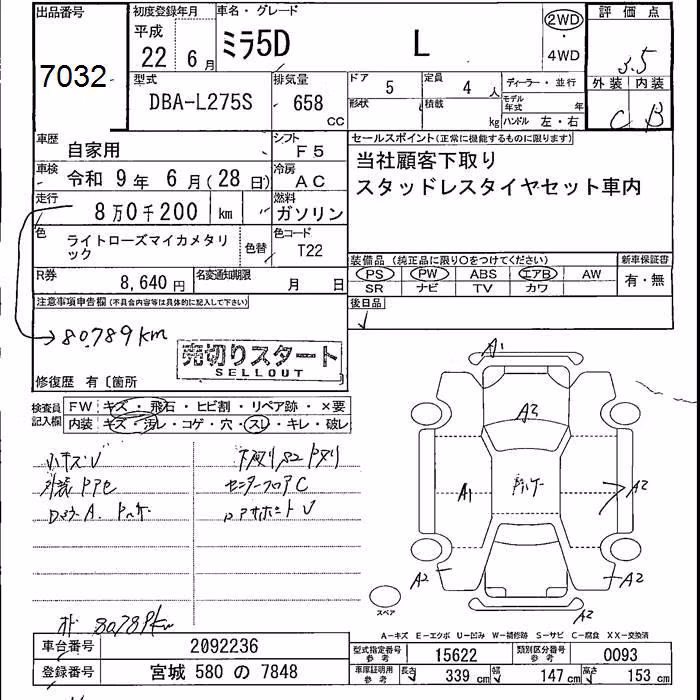 出品番号
7032
初度登録年月
平成
22年6月
車名・グレード
ミラ5D L
2WD
・
4WD
評価点
3.5
外装 内装
C B
型式
DBA-L275S
排気量
658
CC
ドア 5
形状
定員 4人
積載 kg
ディーラー・並行
モデル年式 年
ハンドル 左・右
車歴
自家用
シフト
F5
車検
令和 9年 6月(28日)
冷房
AC
走行
8万0千200 km
燃料
ガソリン
色
ライトローズマイカメタリック
色替
色コード
T22
R券
8,640円
名変通知期限
月 日
セールスポイント(正常に機能するものに限ります)
当社顧客下取り
スタッドレスタイヤセット車内
装備品(純正品に限り○をつけてください)
PS PW ABS エアB AW
SR ナビ TV カワ
新車保証書
有・無
後日品
注意事項申告欄(不具合内容等は具体的に記入して下さい)
80,789km
売切りスタート
SELLOUT
修復歴 有〔箇所
検査員記入欄
FW キズ・飛石・ヒビ割・リペア跡・×要
内装 キズ・汚レ・コゲ・穴・スレ・キレ・破レ
小キズ
センターフロアC
80789km
A1
A3
A1
A2
A2
A2
A2
スペア
A-キズ E-エクボ U-凹み W-補修跡 S-サビ C-腐食 XX-交換済
車台番号
2092236
登録番号
宮城 580 の 7848
型式指定番号
参考
15622
類別区分番号
参考
0093
車庫証明用
参考
長さ 339cm
幅 147cm
高さ 153cm